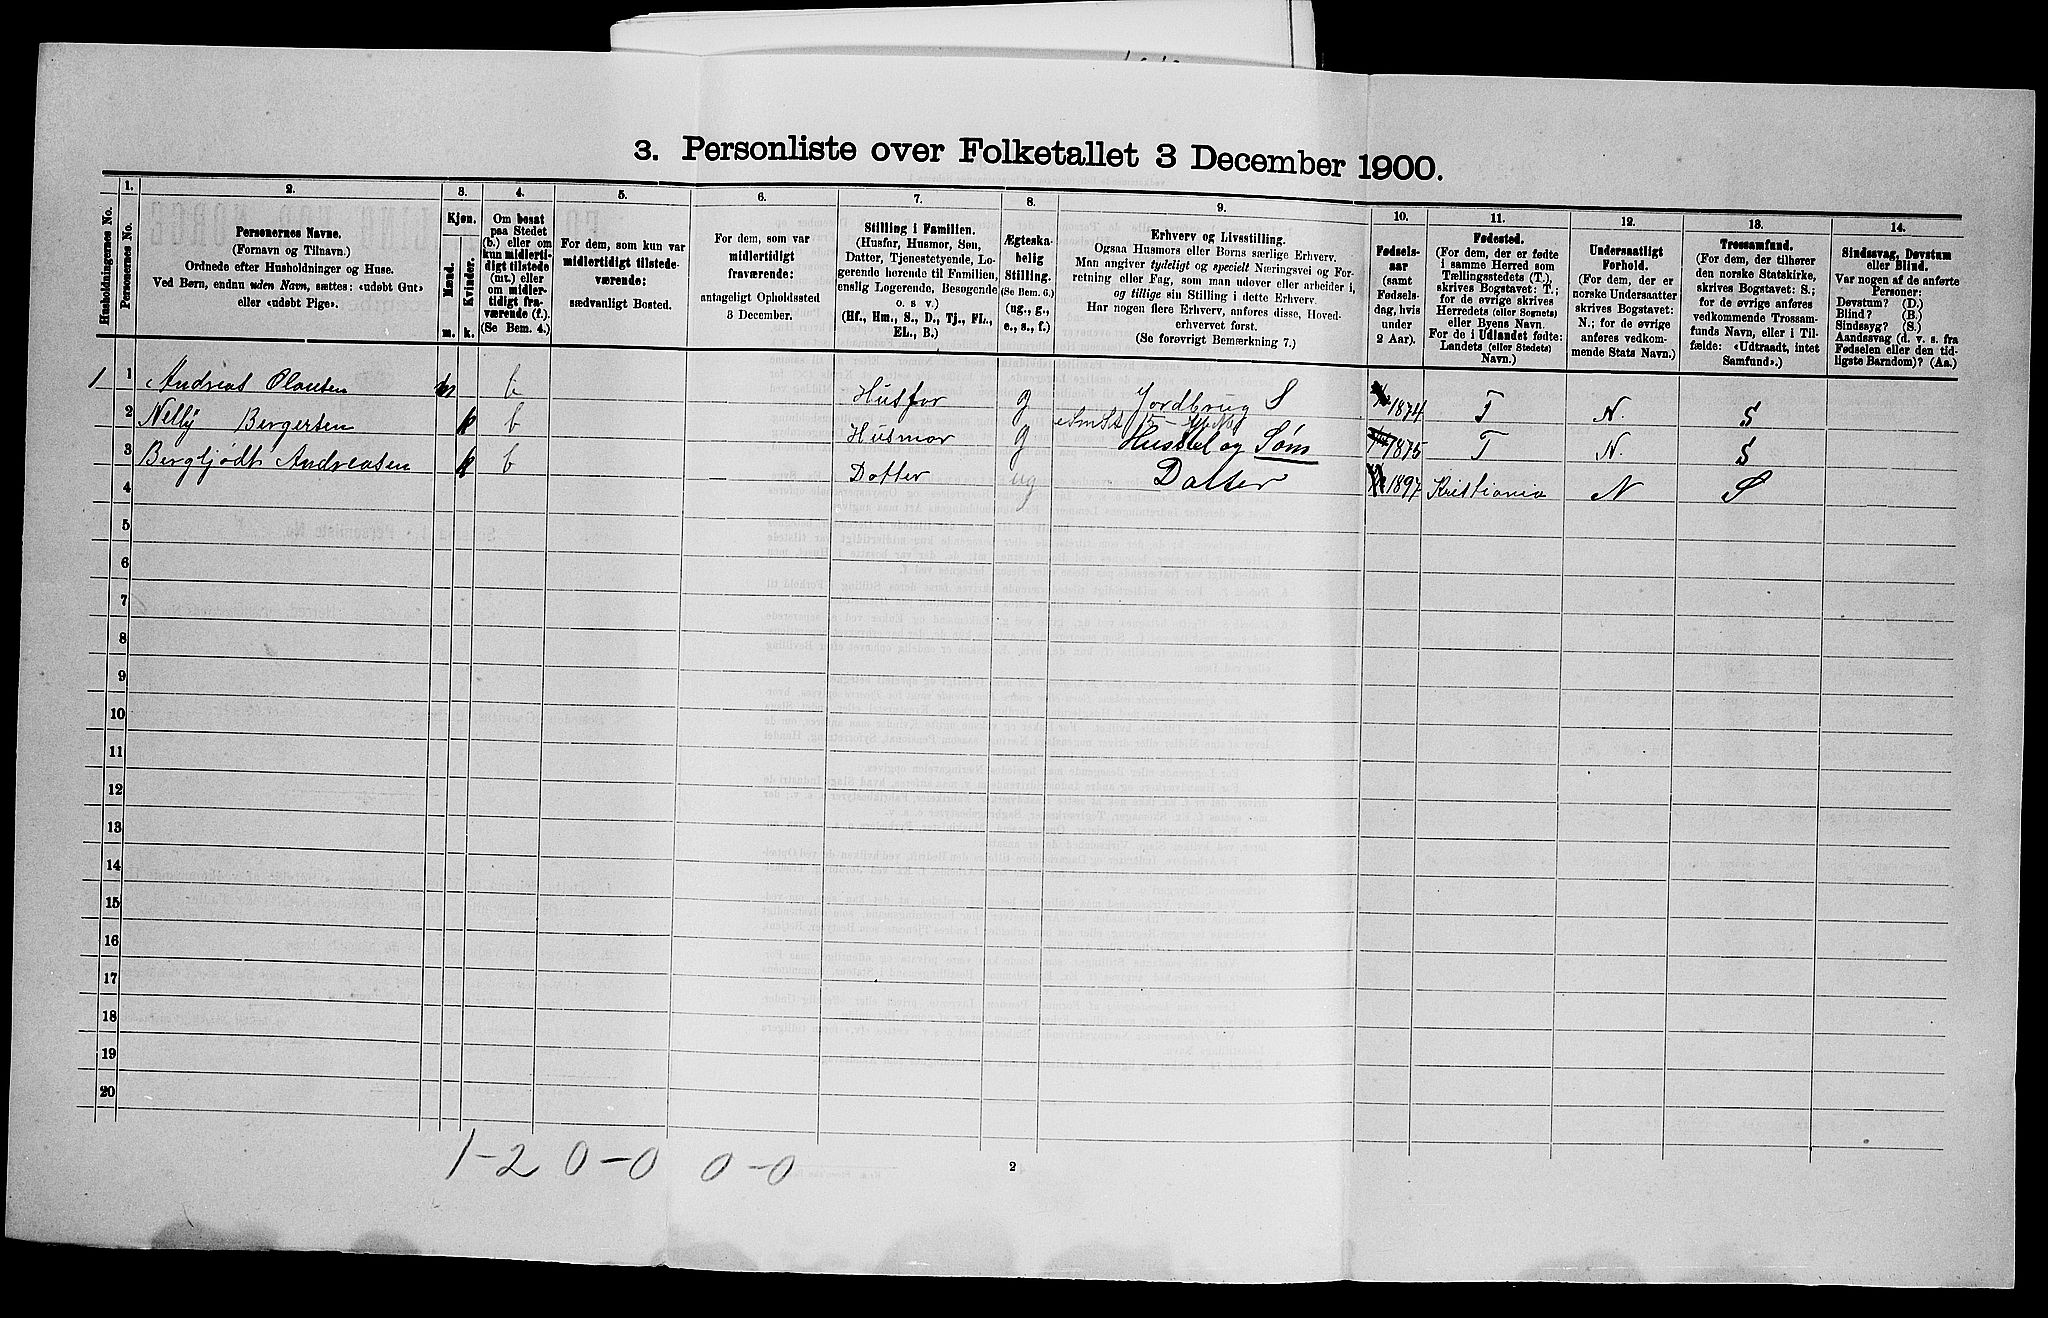 3. Personliste over Folketallet 3 December 1900.
Husholdningernes No.
1.
Personernes No.
2.
Personernes Navne.
(Fornavn og Tilnavn.)
Ordnede efter Husholdninger og Huse.
Ved Børn, endnu uden Navn, sættes: «udøbt Gut»
eller «udøbt Pige».
3.
Kjøn.
Mænd.
Kvinder.
m. k.
4.
Om bosat
paa Stedet
(b.) eller om
kun midlerti-
digt tilstede
(mt.) eller
om midler-
tidigt fra-
værende (f.).
(Se Bem. 4.)
5.
For dem, som kun var
midlertidigt tilstede-
værende:
sædvanligt Bosted.
6.
For dem, som var
midlertidigt
fraværende:
antageligt Opholdssted
3 December.
7.
Stilling i Familien.
(Husfar, Husmor, Søn,
Datter, Tjenestetyende, Lo-
gerende hørende til Familien,
enslig Logerende, Besøgende
o. s v.)
(Hf., Hm., S., D., Tj., FL.,
EL., B.)
8.
Ægteska-
belig
Stilling.
(Se Bem. 6.)
(ug., g.,
e., s., f.)
9.
Erhverv og Livsstilling.
Ogsaa Husmors eller Børns særlige Erhverv.
Man angiver tydeligt og specielt Næringsvei og For-
retning eller Fag, som man udover eller arbeider i,
og tillige sin Stilling i dette Erhverv.
Har nogen flere Erhverv, anføres disse, Hoved-
erhvervet først.
(Se forøvrigt Bemærkning 7.)
10.
Fødsels-
aar
(samt
Fødsels-
dag, hvis
under
2 Aar).
11.
Fødested.
(For dem, der er fødte
i samme Herred som
Tællingsstedets (T.),
skrives Bogstavet: T.;
for de øvrige skrives
Herredets (eller Sognets)
eller Byens Navn.
For de i Udlandet fødte:
Landets (eller Stedets)
Navn.)
12.
Undersaatligt
Forhold.
(For dem, der er
norske Undersaatter
skrives Bogstavet:
N.; for de øvrige
anføres vedkom-
mende Stats Navn.)
13.
Trossamfund.
(For dem, der tilhører
den norske Statskirke,
skrives Bogstavet: S.;
for de øvrige anføres
vedkommende Trossam-
funds Navn, eller i Til-
fælde: «Udtraadt, intet
Samfund».)
14.
Sindssvag, Døvstum
eller Blind.
Var nogen af de anførte
Personer:
Døvstum? (D.)
Blind? (B.)
Sindssyg? (S.)
Aandssvag (d. v. s. fra
Fødselen eller den tid-
ligste Barndom)? (Aa.)
1 1 Andreas Olausen m b Husfar g Jordbrug S 1874 T N. S
2 Nelly Bergersen k b Husmor g Husstel og Søm 1875 T N. S
3 Bergljødt Andreasen k b Datter ug Datter 1897 Kristiania N S
4
5
6
7
8
9
10
11
12
13
14
15
16
17
18
19
20
1-2 0-0 0-0
2